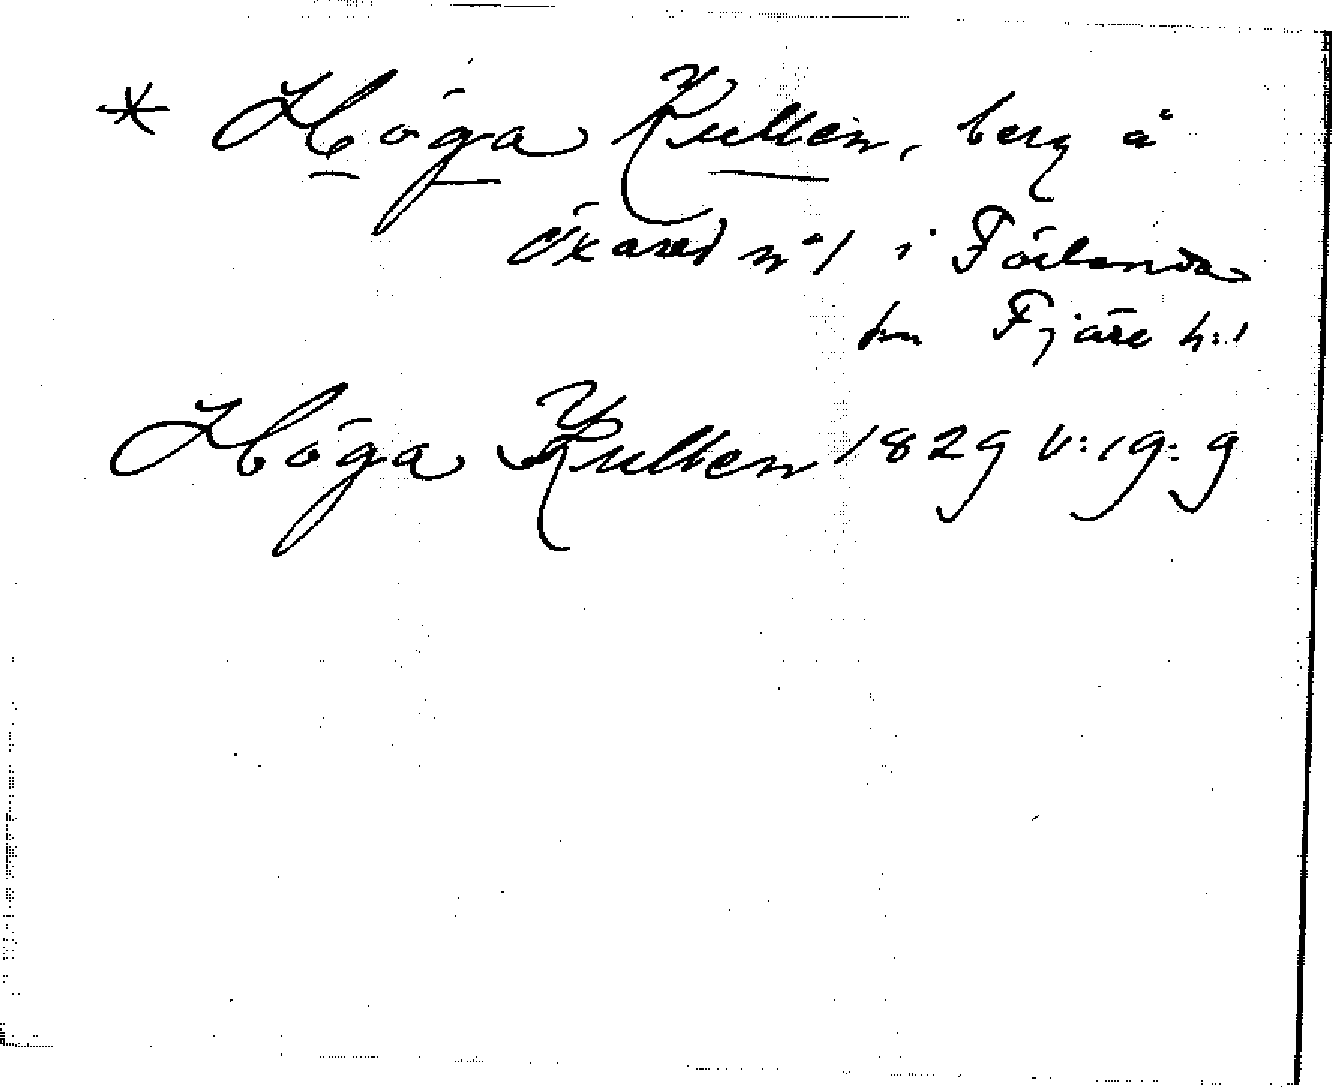 * Höga Kullen, berg å
Öxared nº 1 i Förlanda
sn Fjäre h:d
Höga Kullen 1829 V:19:9